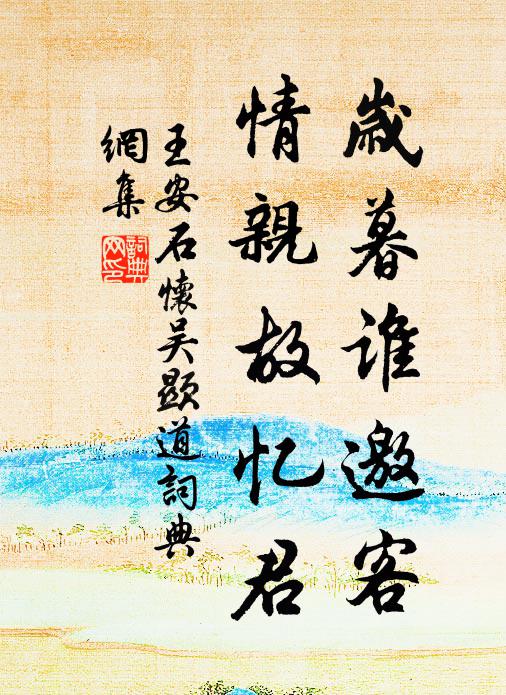 歲暮誰邀客
情親故忆君
王安石懷吴顯道詞典
網集
詞典网印